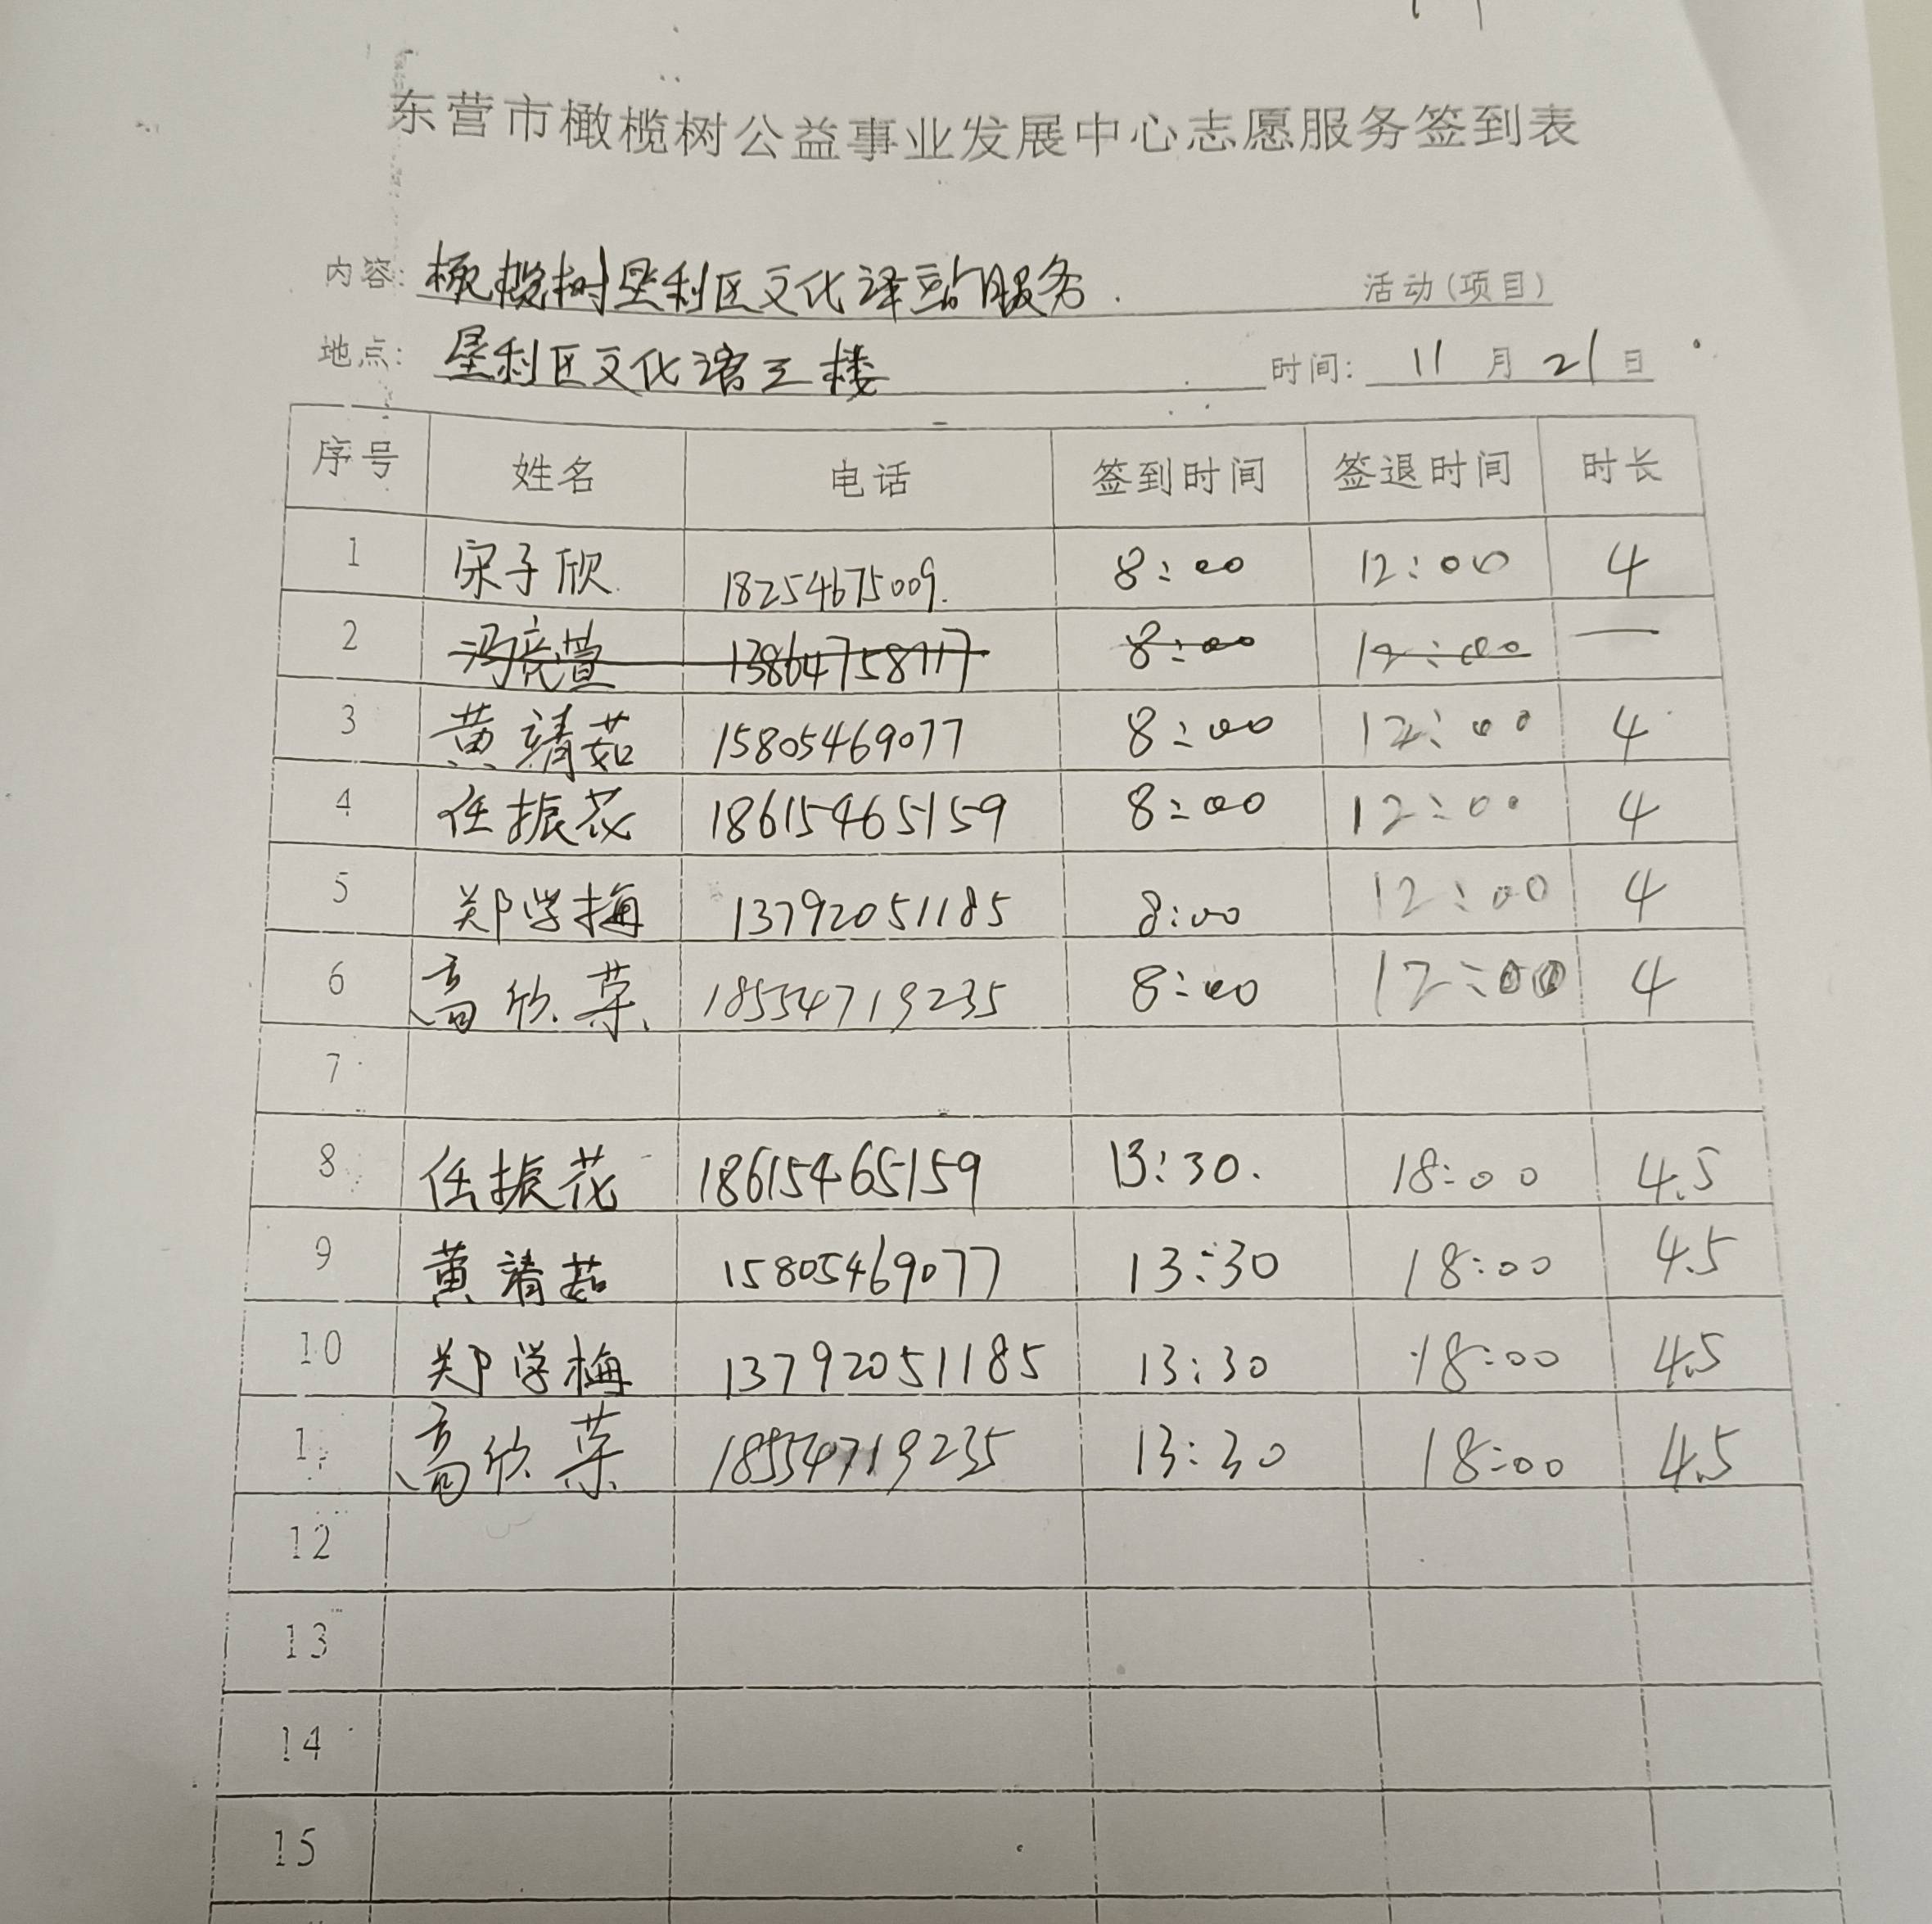 东营市橄榄树公益事业发展中心志愿服务签到表
内容: 橄榄树垦利区文化译站服务 活动(项目)
地点: 垦利区文化馆三楼 时间: 11 月 21 日
序号 姓名 电话 签到时间 签退时间 时长
1 宋子欣 18254675009. 8:00 12:00 4
2 冯亮萱 13864758717 8:00 12:00 —
3 黄靖茹 15805469077 8:00 12:00 4
4 任振花 18615465159 8:00 12:00 4
5 郑学梅 13792051185 8:00 12:00 4
6 高欣荣 18554719235 8:00 12:00 4
7
8 任振花 18615465159 13:30. 18:00 4.5
9 黄靖茹 15805469077 13:30 18:00 4.5
10 郑学梅 13792051185 13:30 18:00 4.5
1 高欣荣 18554719235 13:30 18:00 4.5
12
13
14
15